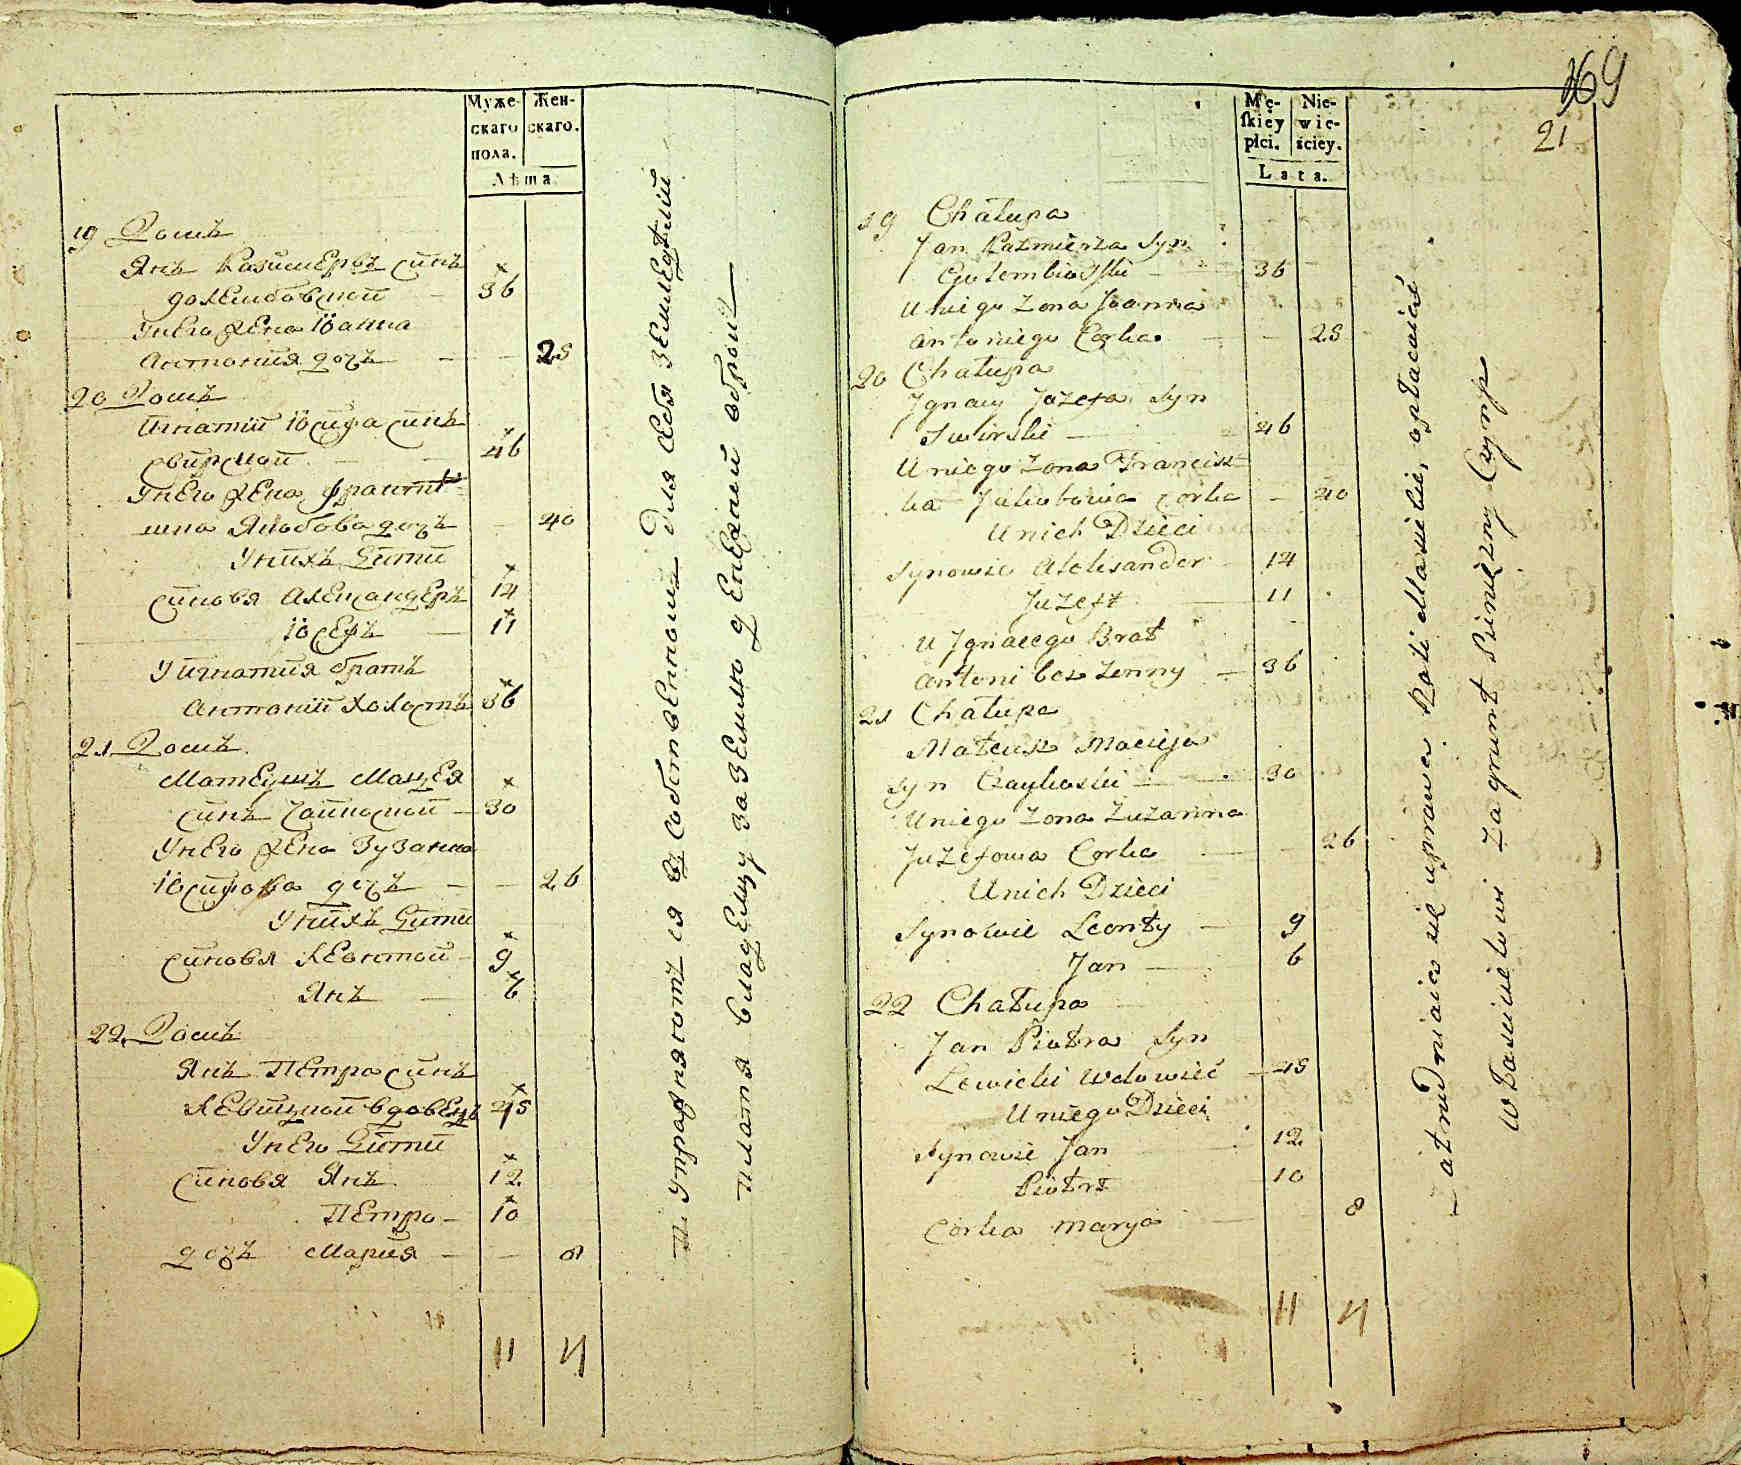 Муже- Жен-
скаго скаго.
пола.
Лѣта.
19 Домъ
Янъ Казимеровъ синъ
Голембовской — 36
У него жена Іоанна
Антонія дочь — — 25
20 Домъ
Игнатій Іосифа синъ
Свирской — 46
У него жена Франтиш-
шка Якобова дочь — 40
У нихъ Дѣти
Синовя Александеръ 14
Іосефъ — 11
У Игнатія братъ
Антоній холостъ 36
21 Домъ
Матеушъ Мацея
синъ Чайковской — 30
У него жена Зузанна
Іосифова дочь — — 26
У нихъ Дѣти
Синовя Леонтой — 9
Янъ — 6
22 Домъ
Янъ Петра синъ
Левицкой вдовецъ 45
У него Дѣти
Синовя Янъ 12
Петро — 10
дочь Марія — — 8
11 4
Упражняются въ собственномъ для себя земледѣлій
платя владелцу за землю денежной оброкъ
169
21
Mę- Nie-
skiey wie-
płci. ściey.
Lata.
19 Chałupa
Jan Kazmierza Syn
Gołembiowski — 36
U niego Zona Joanna
Antoniego Corka — — 25
20 Chałupa
Jgnacy Jozefa Syn
Swirski — 46
U niego Zona Francisz-
ka Jakubowa Corka — 40
U nich Dzieci
Synowie Alexander 14
Juzeff — 11
U Jgnacego Brat
Antoni bez Zenny — 36
21 Chałupa
Mateusz Macieja
Syn Czaykoski — 30
U niego Zona Zuzanna
Juzefowa Corka — 26
U nich Dzieci
Synowie Leonty — 9
Jan — 6
22 Chałupa
Jan Piotra Syn
Lewicki Wdowiec — 45
U niego Dzieci
Synowie Jan 12
Piotr 10
Corka Marya — 8
11 4
Zatrudniaią się uprawą Roli opłacaiąc
Właścicielowi Zagrunt Pieniężny Czynsz